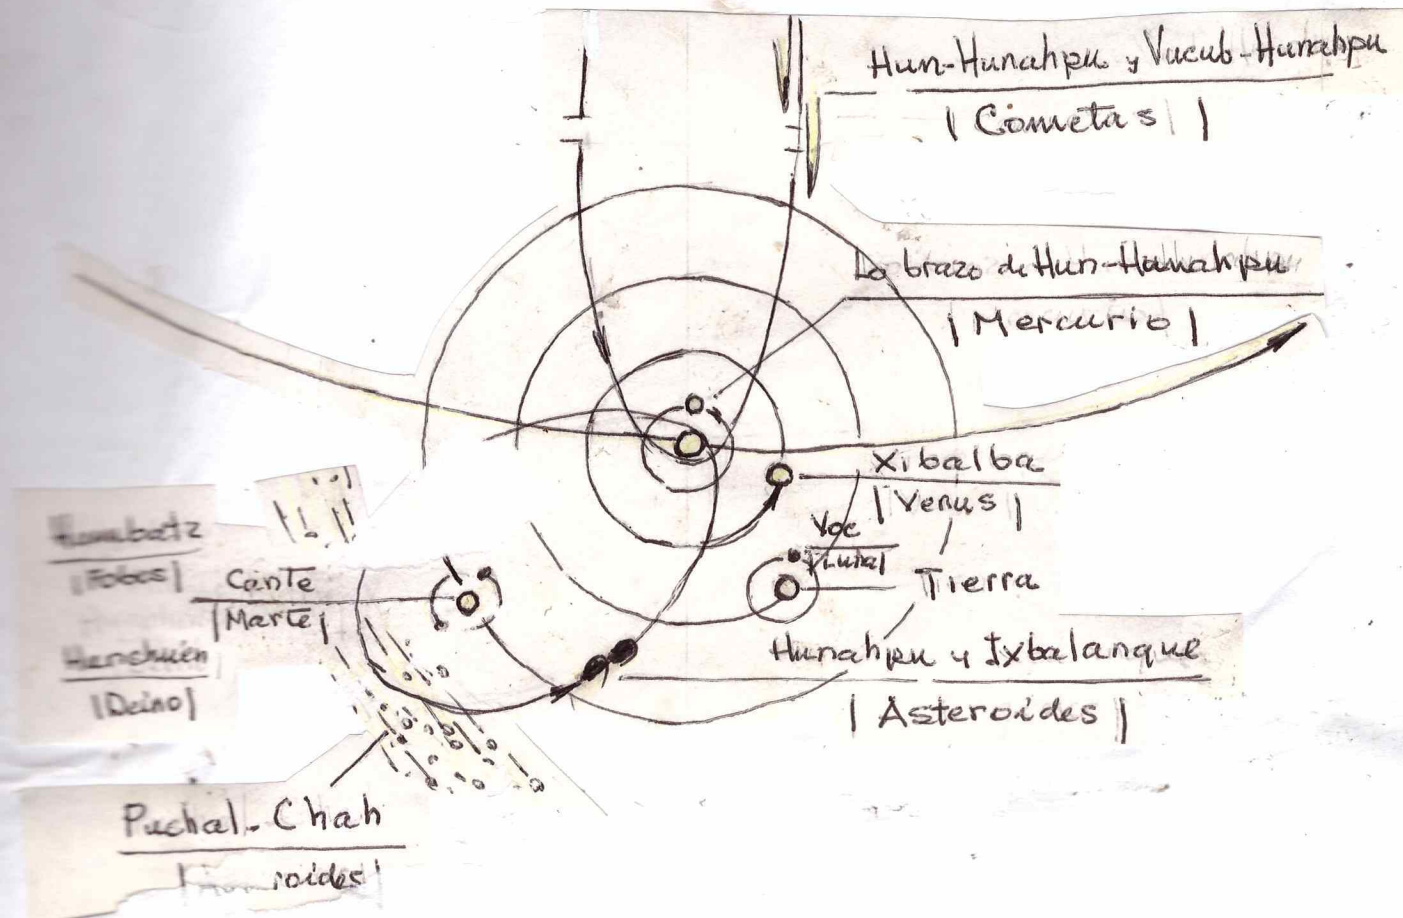 Hun-Hunahpu y Vucub-Hunahpu
| Cometas |
Lo brazo de Hun-Hunahpu
| Mercurio |
Xibalba
| Venus |
Voc
Tierra
Hunahpu y Ixbalanque
| Asteroides |
Hunubatz
| Fobos |
Cante
| Marte |
Hunchuen
| Deino |
Puchal-Chah
roides |